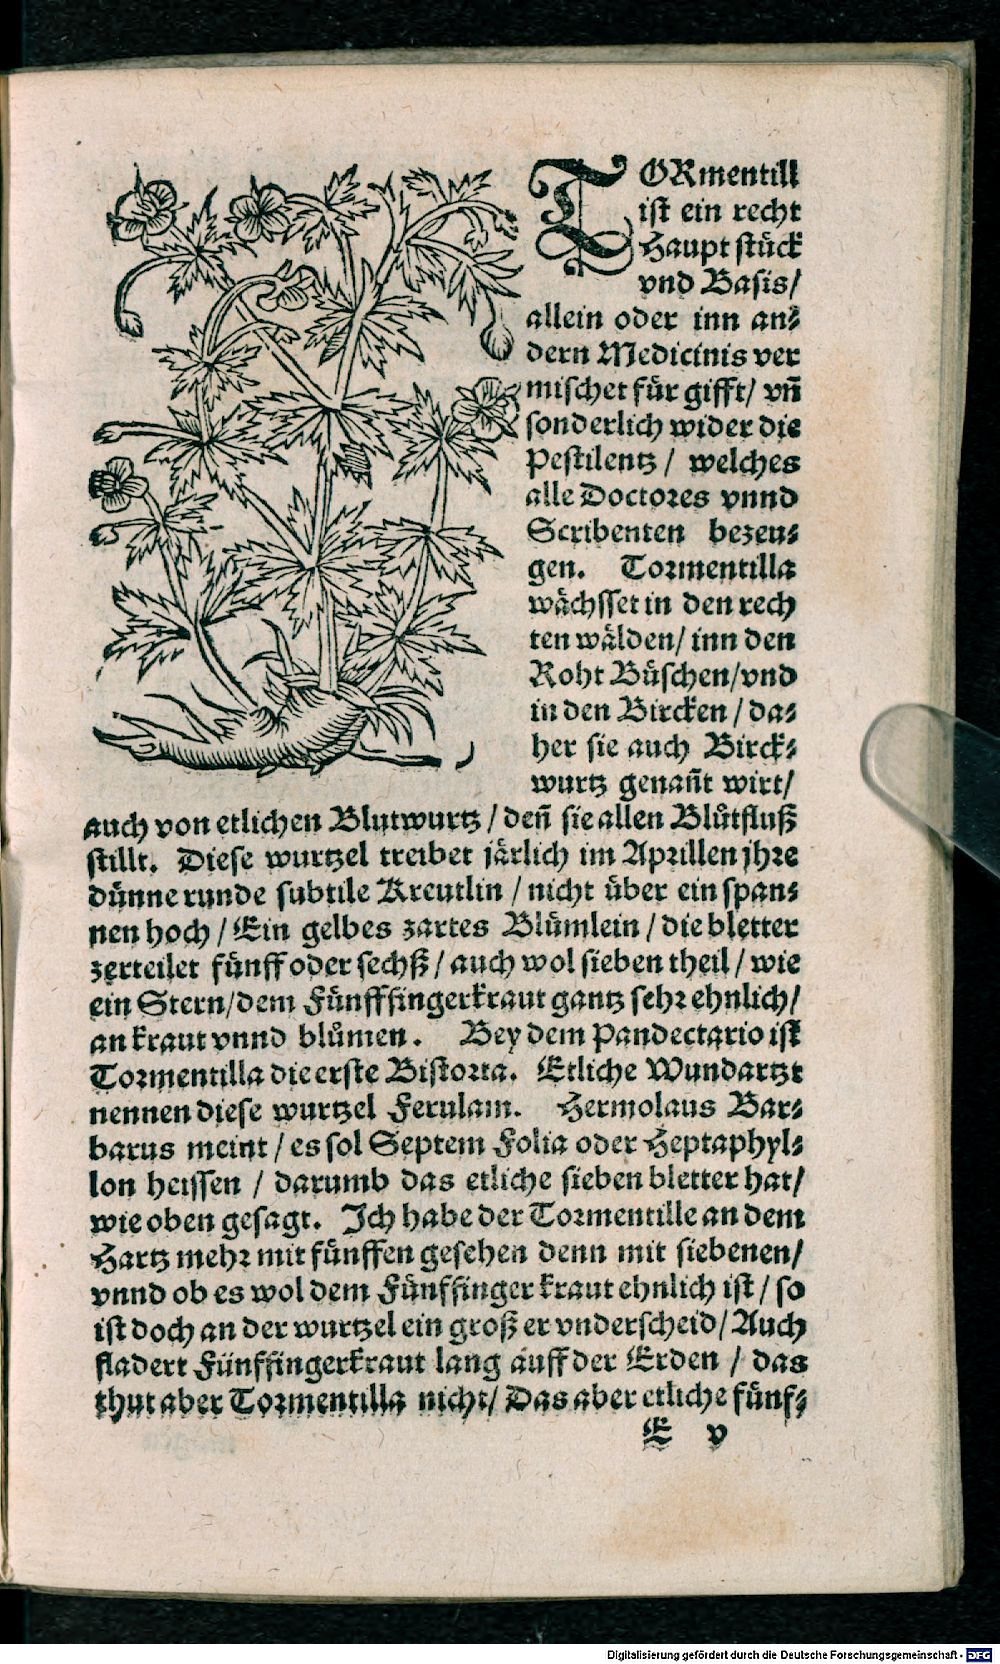 TORmentill
ist ein recht
Hauptstück
vnd Basis/
allein oder inn an⸗
dern Medicinis ver
mischet für gifft/ vñ
sonderlich wider die
Pestilentz / welches
alle Doctores vnnd
Scribenten bezeu⸗
gen. Tormentilla
wächsset in den rech
ten wälden/ inn den
Roht Büschen/vnd
in den Bircken / da⸗
her sie auch Birck⸗
wurtz genañt wirt/
auch von etlichen Blutwurtz / deñ sie allen Blůtfluß
stillt. Diese wurtzel treibet järlich im Aprillen jhre
dünne runde subtile Kreutlin / nicht über ein span⸗
nen hoch / Ein gelbes zartes Blümlein / die bletter
zerteilet fünff oder sechß / auch wol sieben theil / wie
ein Stern/dem Fünffingerkraut gantz sehr ehnlich/
an kraut vnnd blůmen. Bey dem Pandectario ist
Tormentilla die erste Bistorta. Etliche Wundartzt
nennen diese wurtzel Ferulam. Hermolaus Bar⸗
barus meint / es sol Septem Folia oder Heptaphyl⸗
lon heissen / darumb das etliche sieben bletter hat/
wie oben gesagt. Ich habe der Tormentille an dem
Hartz mehr mit fünffen gesehen denn mit siebenen/
vnnd ob es wol dem Fünffinger kraut ehnlich ist / so
ist doch an der wurtzel ein großer vnderscheid/ Auch
fladert Fünffingerkraut lang auff der Erden / das
thut aber Tormentilla nicht/ Das aber etliche fünf⸗
E v
Digitalisierung gefördert durch die Deutsche Forschungsgemeinschaft - DFG